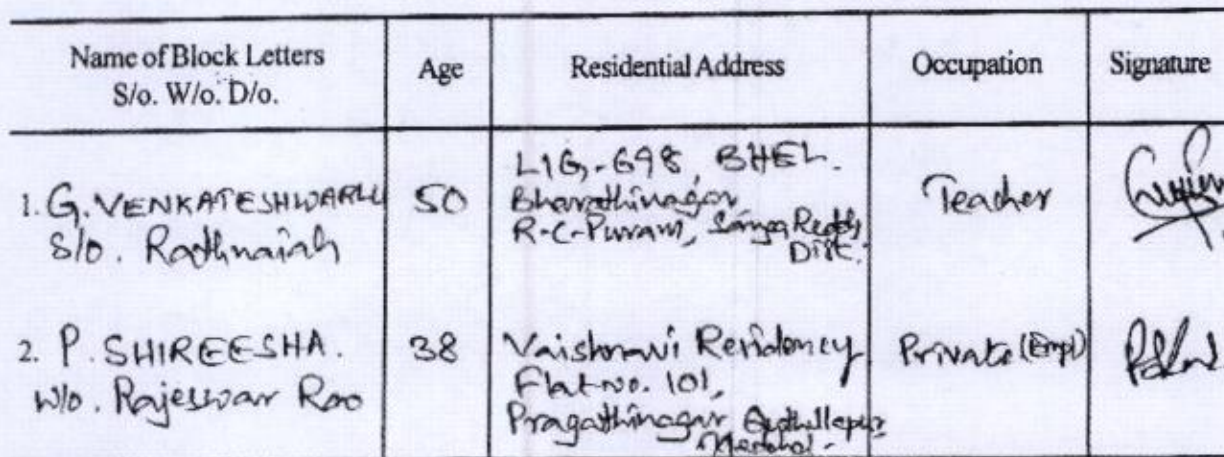 Name of Block Letters
S/o. W/o. D/o.
Age
Residential Address
Occupation
Signature
1. G. VENKATESHWARLU
S/o. Rathnaiah
50
LIG-698, BHEL.
Bharathinagar
R-C-Puram, Sanga Reddy
Dist.
Teacher
2. P. SHIREESHA.
W/o. Rajeswar Rao
38
Vaishnavi Residency
Flat no. 101,
Pragathinagar,
Private (Empl)